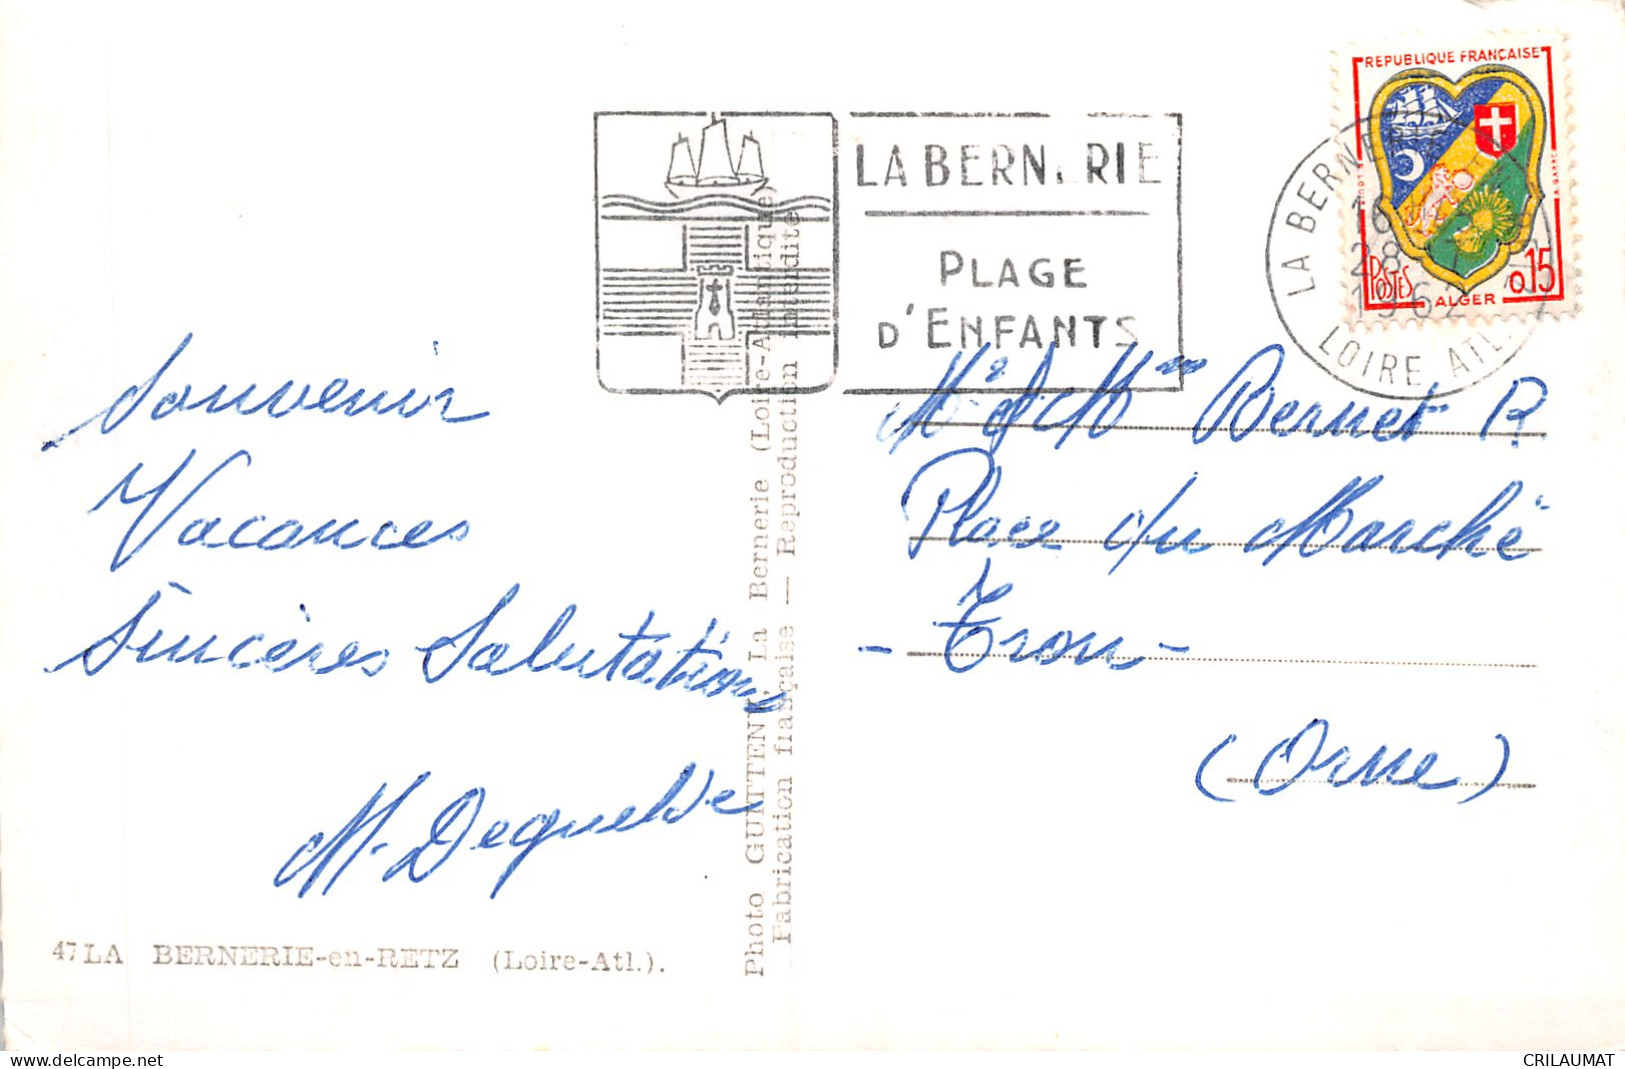 Souvenir
Vacances
Sincères Salutations
M. Deguelde
47 LA BERNERIE-en-RETZ (Loire-Atl.).
Photo GUITTENY, La Bernerie (Loire-Atlantique)
Fabrication française — Reproduction interdite
LA BERNERIE
PLAGE
D'ENFANTS
REPUBLIQUE FRANÇAISE
POSTES
ALGER
0,15
LA BERNERIE
16
28
1962
LOIRE ATL.
Mr & Mme Bernet R.
Place du Marché
- Tron -
(Orne)
www.delcampe.net
CRILAUMAT